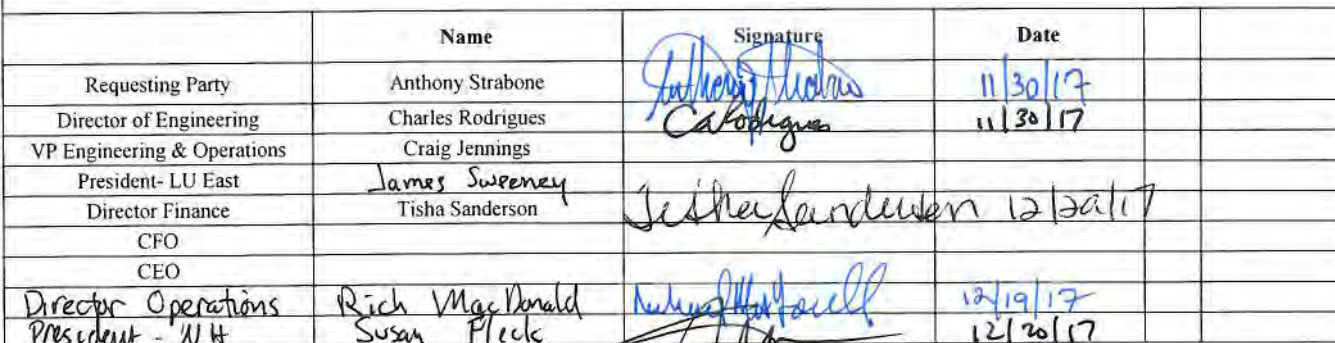 Name Signature Date
Requesting Party Anthony Strabone 11/30/17
Director of Engineering Charles Rodrigues CaRodrigues 11/30/17
VP Engineering & Operations Craig Jennings
President- LU East James Sweeney
Director Finance Tisha Sanderson Tisha Sanderson 12/20/17
CFO
CEO
Director Operations Rich MacDonald 12/19/17
President - NH Susan Fleck 12/20/17